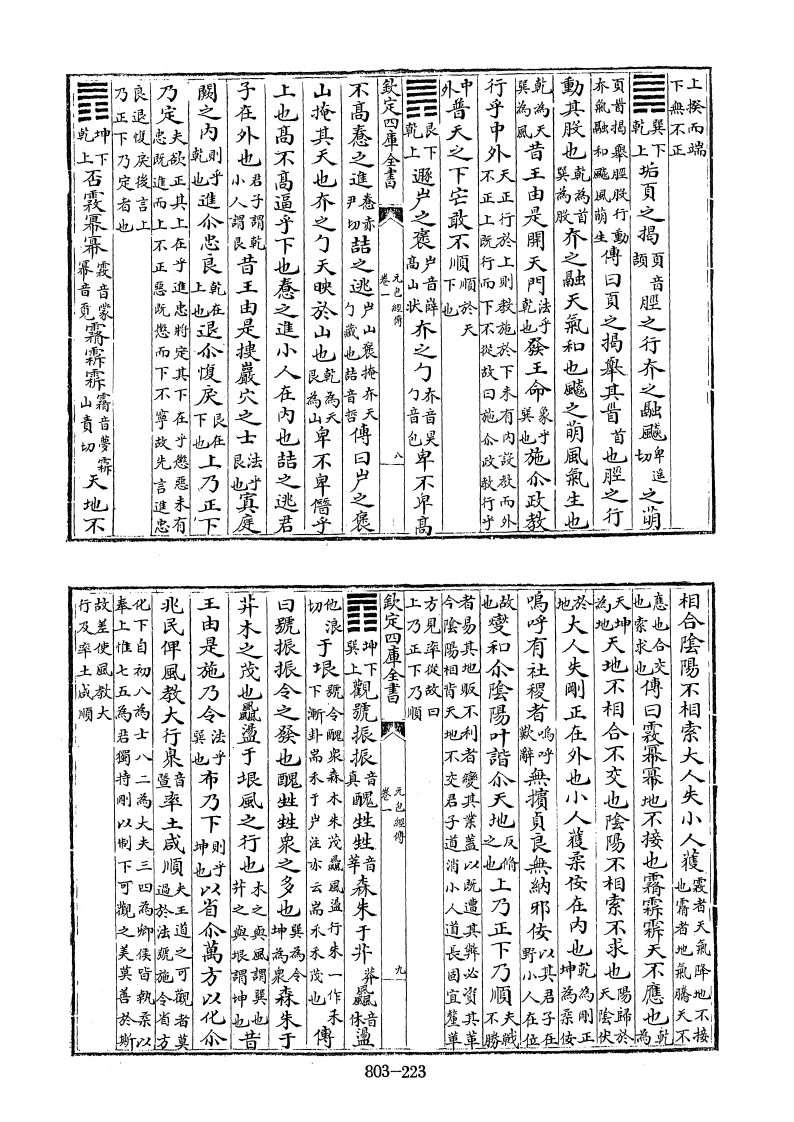 上揆而端
下無不正
䷫巽下乾上姤頁之揭頁音頡脛之行夰之融飈卑遥切之萌
頁𦣻揭舉脛股行動夰氣融和飈風萌生傳曰頁之揭舉其𦣻首也脛之行
動其股也乾為首巽為股夰之融天氣和也飈之萌風氣生也
乾為天巽為風昔王由是開天門法乎乾也發王命象乎巽也施尒政教
行乎中外天正行於上則教施於下未有内設教而外不正上既行而下不從故曰施尒政教行乎
中外普天之下定敢不順順於天下也
䷠艮下乾上遯屵之褒屵音嶭高山狀夰之勹夰音昊勹音包卑不卑高
欽定四庫全書 元包經傳 卷一 八
不高惷之進惷赤尹切詰之逃屵山褒掩夰天勹藏也詰音哲傳曰屵之褒
山掩其天也夰之勹天映於山也乾為天艮為山卑不卑僭乎
上也高不高逼乎下也惷之進小人在内也詰之逃君
子在外也君子謂乾小人謂艮昔王由是㨗巖穴之士法乎艮也寘庭
闕之内則乎乾也進尒忠良乾在上也退尒愎戾艮在下也上乃正下
乃定夫欲正其上在乎進忠將定其下在乎懲惡未有忠既進而上不正惡既懲而下不寧故先言進忠
良退愎戾後言上乃正下乃定者也
䷋坤下乾上否霿冪冪霿音蒙冪音覓霱霹霹天地不
相合陰陽不相索大人失小人獲霿者天氣降地不接也霱者地氣騰天不
應也合交也索求也傳曰霿冪冪地不接也霱霹霹天不應也乾為
天坤為地天地不相合不交也陰陽不相索不求也陽歸於天陰伏
於地大人失剛正在外也小人獲柔佞在内也乾為剛正坤為柔佞
嗚呼有社稷者嗚呼歎辭無擯貞良無納邪佞以其君子在野小人在位
故也變和尒陰陽叶諧尒天地反脩之也上乃正下乃順夫戰不勝
者易其地販不利者變其業蓋以既遭其弊必資其革今陰陽相背天地不交君子道消小人道長固宜釐革
方見率從故曰上乃正下乃順
欽定四庫全書 元包經傳 卷一 九
䷓坤下巽上觀號振振音真醜甡甡音莘森朱于茻莽飍音休盪
他浪切于垠號令醜衆森木朱茂飍風盪行朱一作禾下漸卦耑禾于户注亦云耑水禾茂也傳
曰號振振令之發也醜甡甡衆之多也巽為令坤為衆森朱于
茻木之茂也飍盪于垠風之行也木之與風謂巽也茻之與垠謂坤也昔
王由是施乃令法乎巽也布乃下則乎坤也以省尒萬方以化尒
兆民俾風教大行臮音曁率土咸順夫王道之可觀者莫過於法號施令省方
化下自初八為士八二為大夫三四為卿侯皆執柔以奉上惟七五為君獨持剛以制下可觀之美莫善於斯
故差使風教大行及率土咸順
803-223